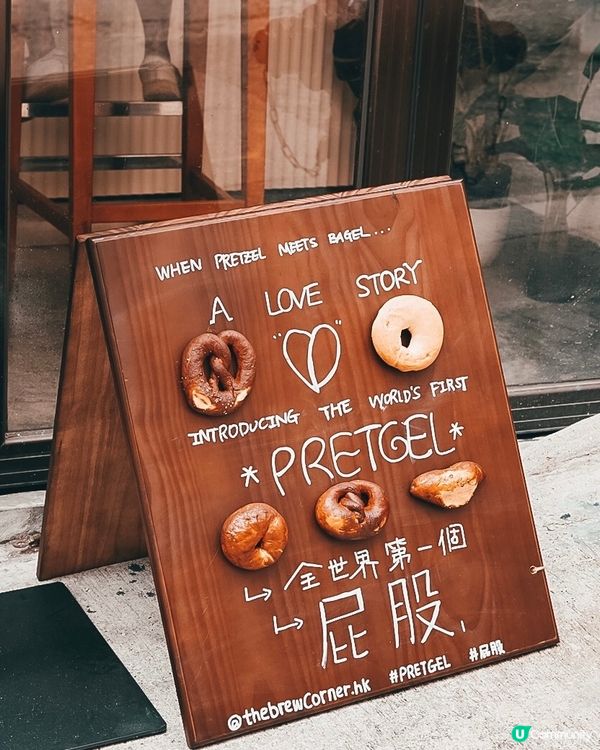 WHEN PRETZEL MEETS BAGEL...
A LOVE STORY
INTRODUCING THE WORLD'S FIRST
*PRETGEL*
↳ 全世界第一個
↳ 屁股
@thebrewCorner.hk #PRETGEL #屁股
U Community